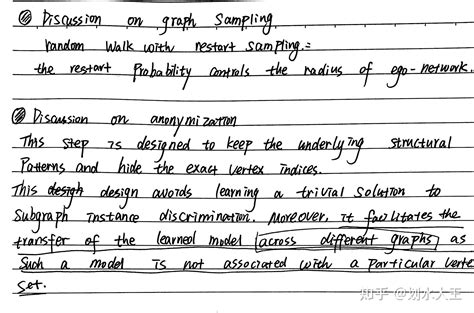 ◎ Discussion on graph Sampling
random walk with restart sampling:
the restart probability controls the radius of ego-network.
◎ Discussion on anonymization
This step is designed to keep the underlying structural
Patterns and hide the exact vertex indices.
This desigh design avoids learning a trivial solution to
Subgraph instance discrimination. Moreover, it facilitates the
transfer of the learned model (across different graphs) as
Such a model is not associated with a particular verte
set.
知乎 @划水大王